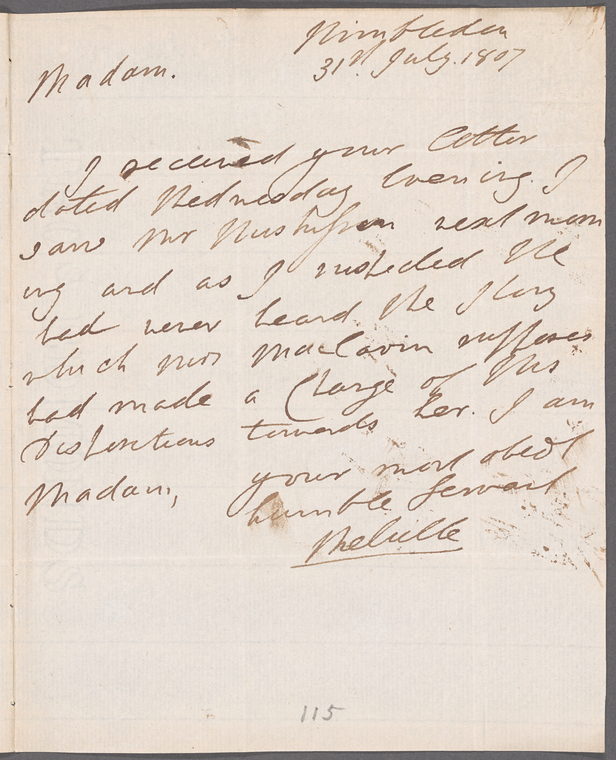 Wimbledon
31st July. 1807
Madam.
I received your letter
dated Wednesday Evening. I
saw Mr next morn
ing and as I suspected He
had never heard the Story
which Mrs MacLaurin supposes
had made a Change of His
Dispositions towards her. I am
Madam,
your most obedt
humble Servant
Melville
115